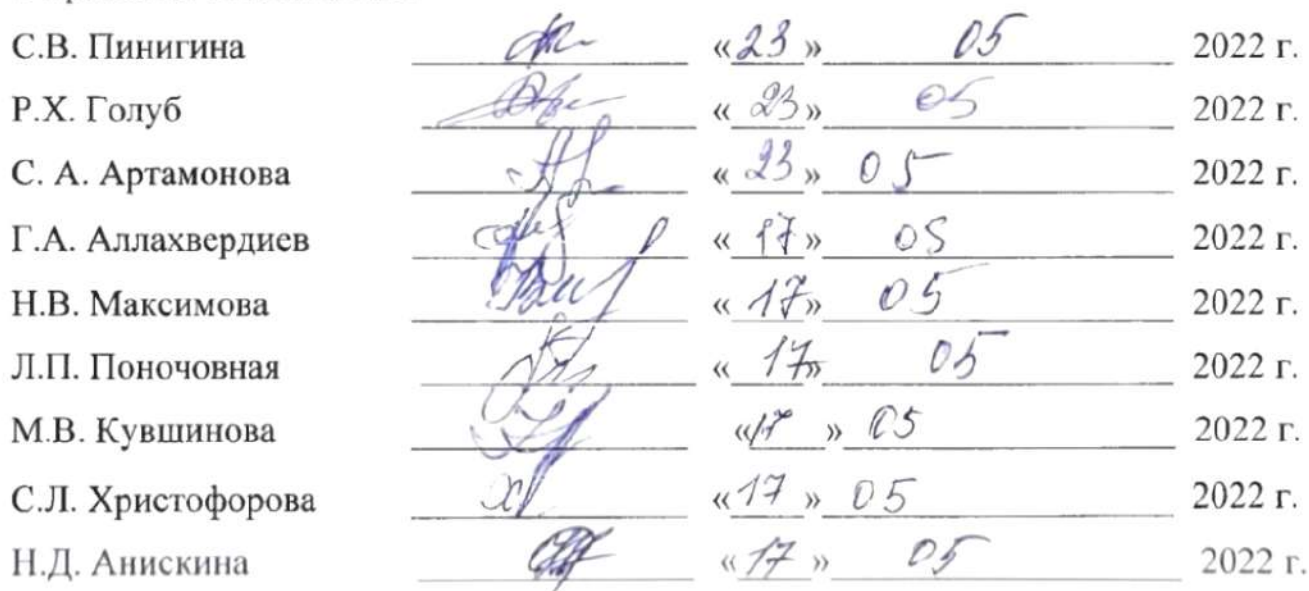 С.В. Пинигина «23» 05 2022 г.
Р.Х. Голуб «23» 05 2022 г.
С. А. Артамонова «23» 05 2022 г.
Г.А. Аллахвердиев «17» 05 2022 г.
Н.В. Максимова «17» 05 2022 г.
Л.П. Поночовная «17» 05 2022 г.
М.В. Кувшинова «17» 05 2022 г.
С.Л. Христофорова «17» 05 2022 г.
Н.Д. Анискина «17» 05 2022 г.